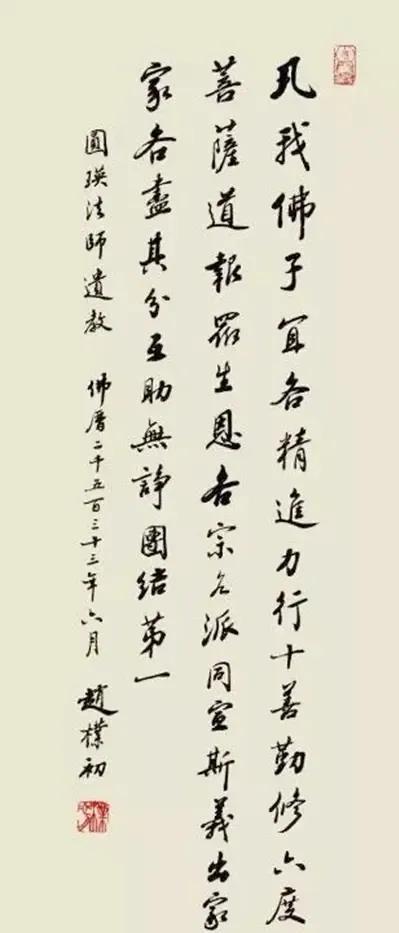 凡我佛子宜各精進力行十善勤修六度
菩薩道報眾生恩各宗各派同宣斯義出家
家各盡其分互助無諍團結第一
圓瑛法師遺教 佛曆二千五百三十三年六月 趙樸初